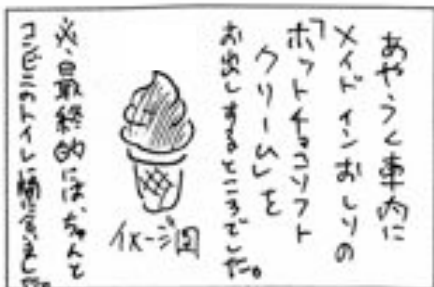 あやうく車内に
メイドインおしりの
「ホットチョコソフト
クリーム」を
お出しするところでした。
イメージ図
※最終的には、ちゃんと
コンビニのトイレに間に合いました。